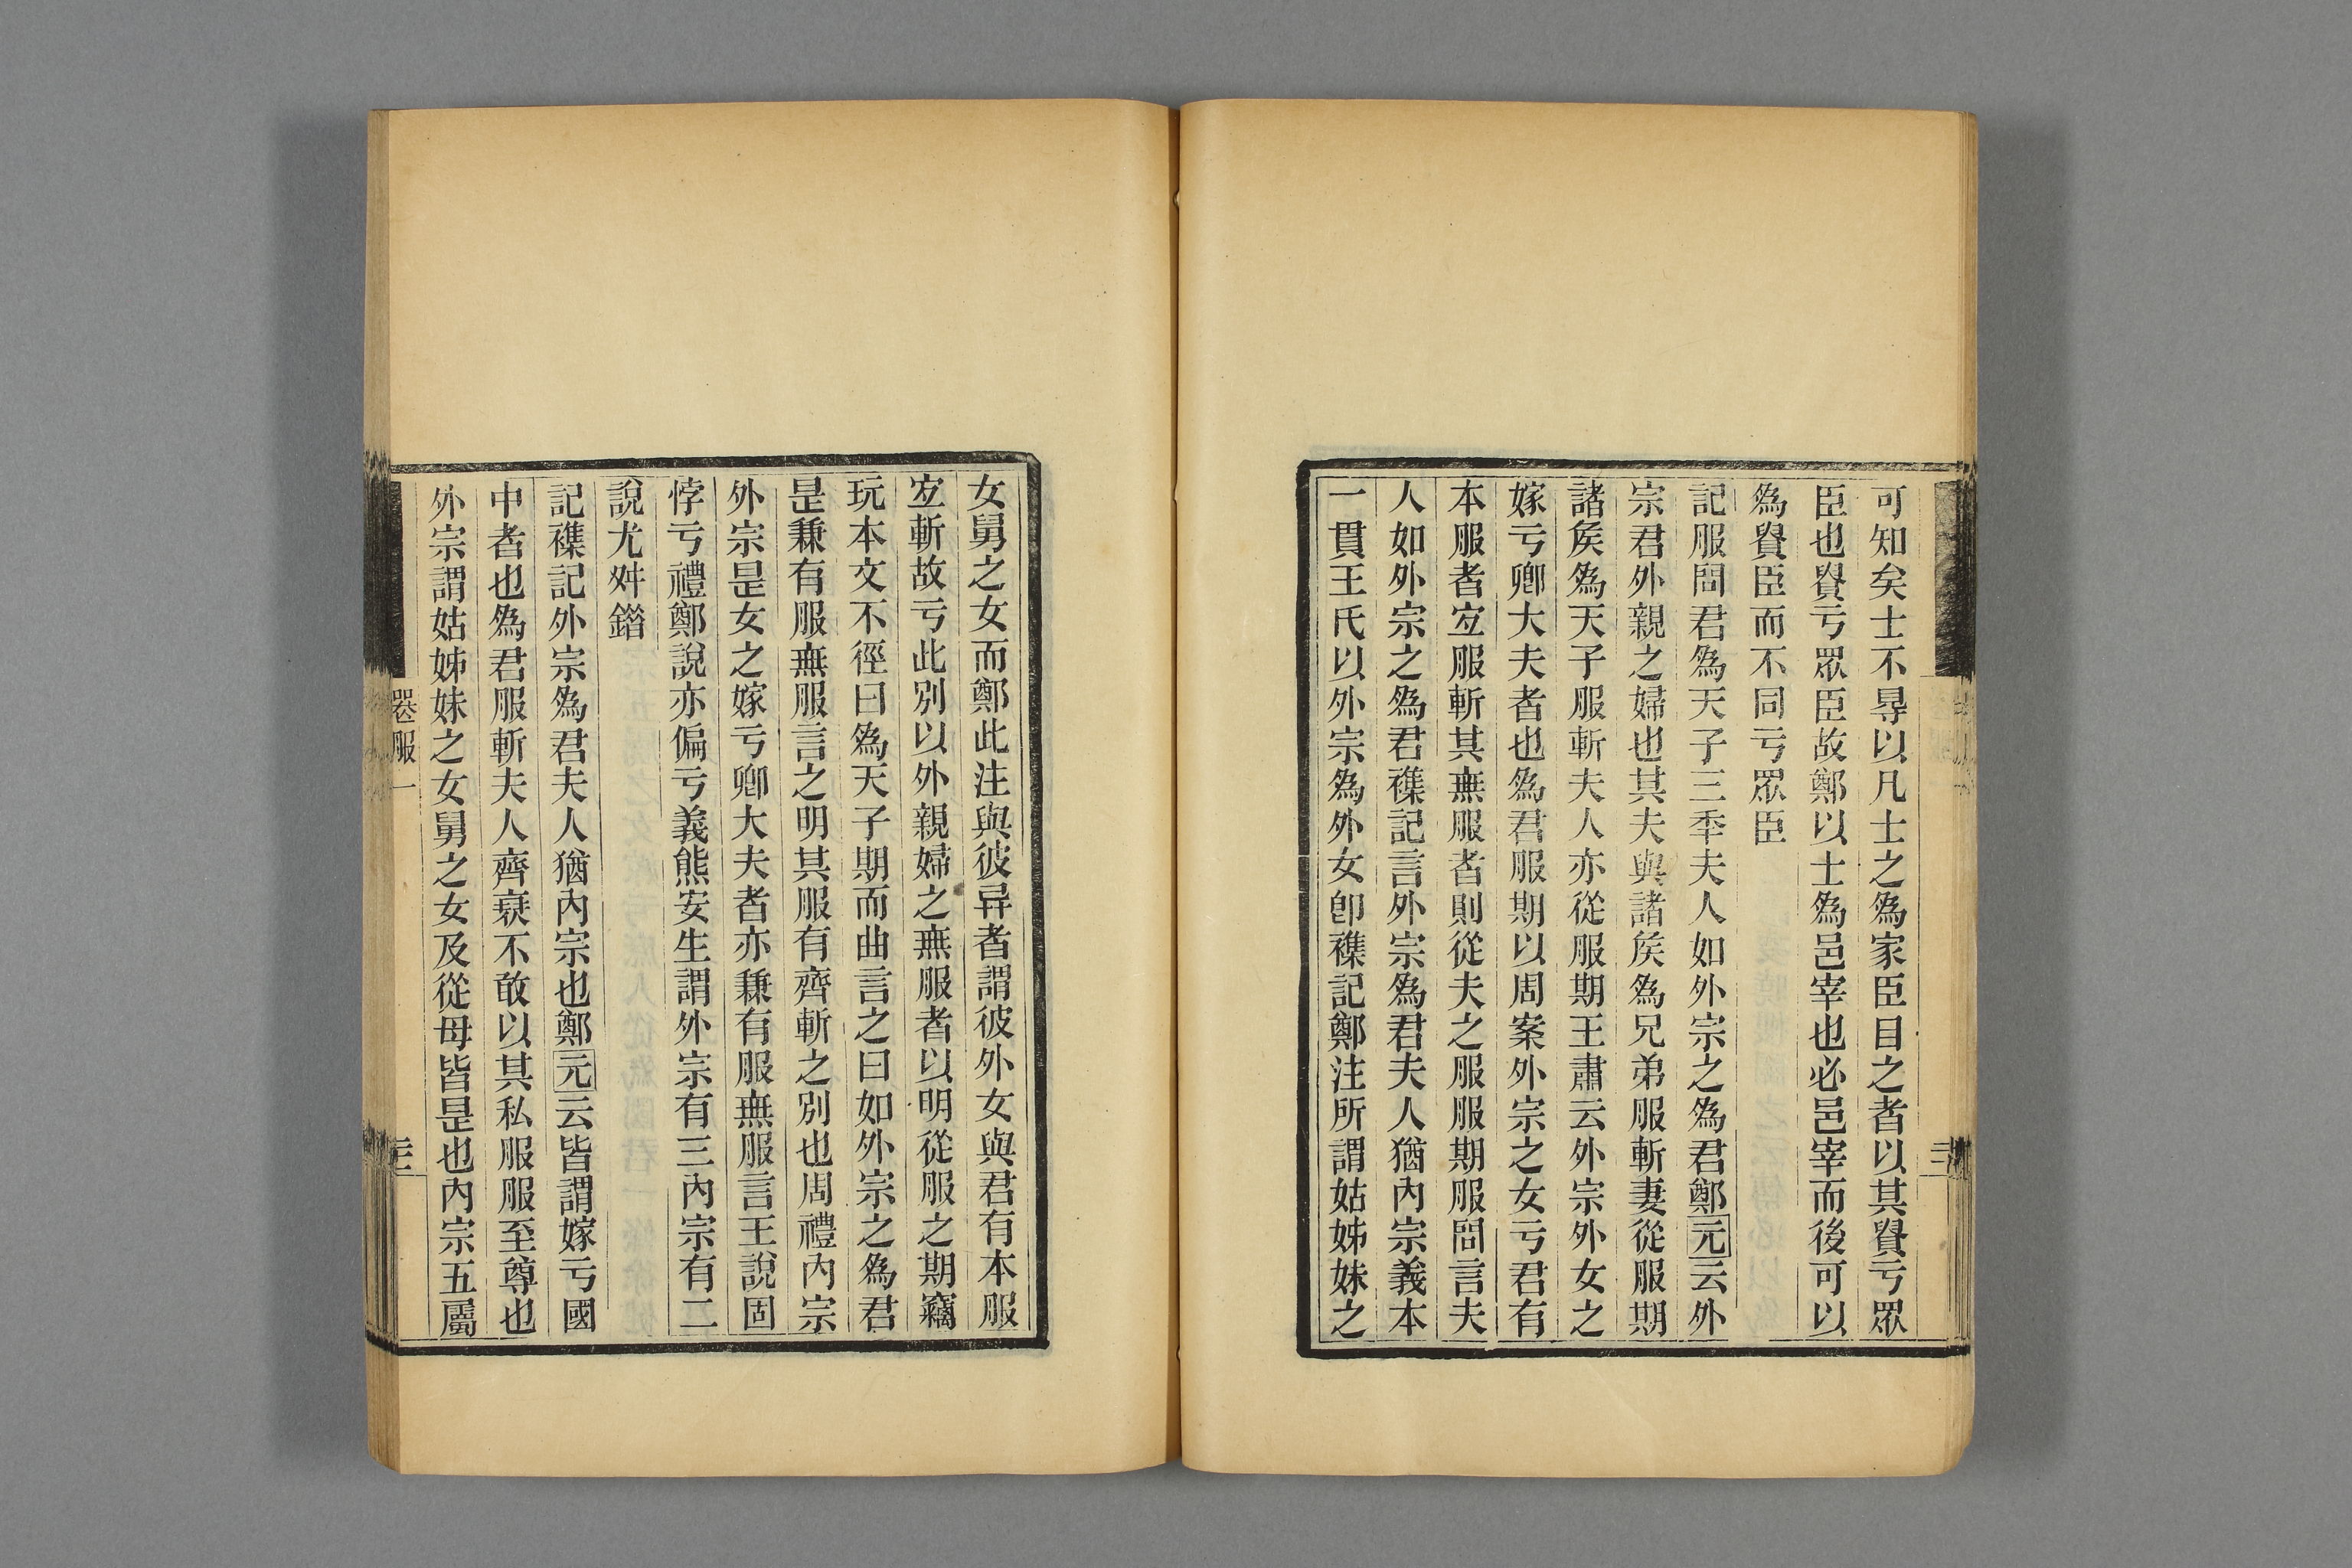 可知矣士不㝵以凡士之爲家臣目之者以其貴亏眾
臣也貴亏眾臣故鄭以士爲邑宰也必邑宰而後可以
爲貴臣而不同亏眾臣
記服問君爲天子三秊夫人如外宗之爲君鄭元云外
宗君外親之婦也其夫與諸矦爲兄弟服斬妻從服期
諸矦爲天子服斬夫人亦從服期王肅云外宗外女之
嫁亏卿大夫者也爲君服期以周案外宗之女亏君有
本服者宐服斬其無服者則從夫之服服期服問言夫
人如外宗之爲君襍記言外宗爲君夫人猶內宗義本
一貫王氏以外宗爲外女卽襍記鄭注所謂姑姊妹之
女舅之女而鄭此注與彼异者謂彼外女與君有本服
宐斬故亏此別以外親婦之無服者以明從服之期竊
玩本文不徑曰爲天子期而曲言之曰如外宗之爲君
是兼有服無服言之明其服有齊斬之別也周禮內宗
外宗是女之嫁亏卿大夫者亦兼有服無服言王說固
悖亏禮鄭說亦偏亏義熊安生謂外宗有三內宗有二
說尤舛鍇
記襍記外宗爲君夫人猶內宗也鄭元云皆謂嫁亏國
中者也爲君服斬夫人齊衰不敢以其私服服至尊也
外宗謂姑姊妹之女舅之女及從母皆是也內宗五屬
喪服一